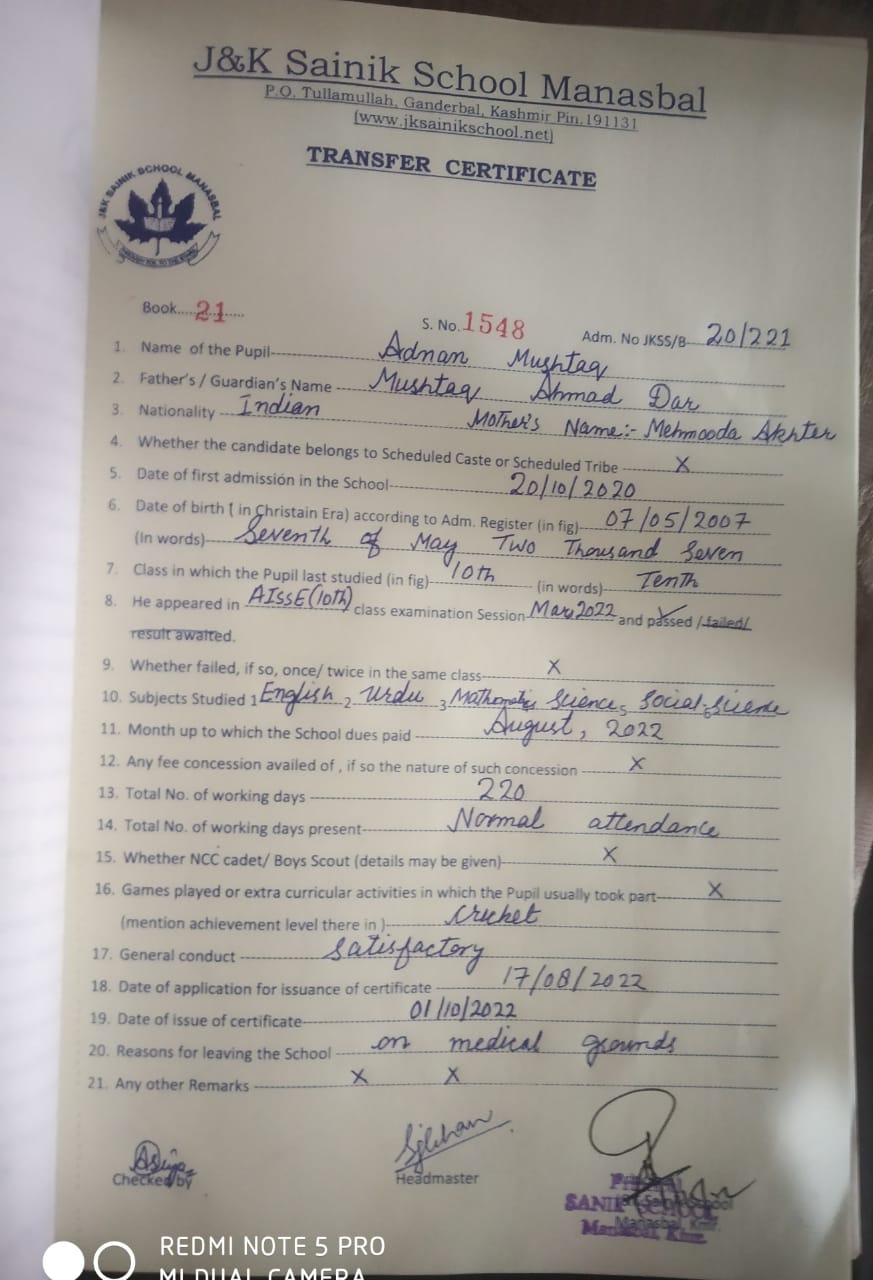 J&K Sainik School Manasbal
P.O. Tullamullah, Ganderbal, Kashmir Pin.191131
(www.jksainikschool.net)
TRANSFER CERTIFICATE
J&K SAINIK SCHOOL MANASBAL
Book.....21.....
S. No.1548
Adm. No JKSS/B---20/221
1. Name of the Pupil---Adnan Mushtaq
2. Father's / Guardian's Name ---Mushtaq Ahmad Dar
3. Nationality ---Indian Mother's Name:- Mehmooda Akhter
4. Whether the candidate belongs to Scheduled Caste or Scheduled Tribe ---X
5. Date of first admission in the School---20/10/2020
6. Date of birth ( in Christain Era) according to Adm. Register (in fig)---07/05/2007
(In words)---Seventh of May Two Thousand Seven
7. Class in which the Pupil last studied (in fig)---10th---(in words)---Tenth
8. He appeared in AISSE(10th) class examination Session Mar 2022 and passed /failed/
result awaited.
9. Whether failed, if so, once/ twice in the same class---X
10. Subjects Studied 1 English 2 Urdu 3 Mathematics Science 5 Social Science
11. Month up to which the School dues paid ---August, 2022
12. Any fee concession availed of , if so the nature of such concession ---X
13. Total No. of working days ---220
14. Total No. of working days present---Normal attendance
15. Whether NCC cadet/ Boys Scout (details may be given)---X
16. Games played or extra curricular activities in which the Pupil usually took part---X
(mention achievement level there in )---Cricket
17. General conduct ---Satisfactory
18. Date of application for issuance of certificate ---17/08/2022
19. Date of issue of certificate---01/10/2022
20. Reasons for leaving the School ---on medical grounds
21. Any other Remarks ---X X
Checked by
Headmaster
SANIK SCHOOL
Manasbal, Kmr.
REDMI NOTE 5 PRO
MI DUAL CAMERA